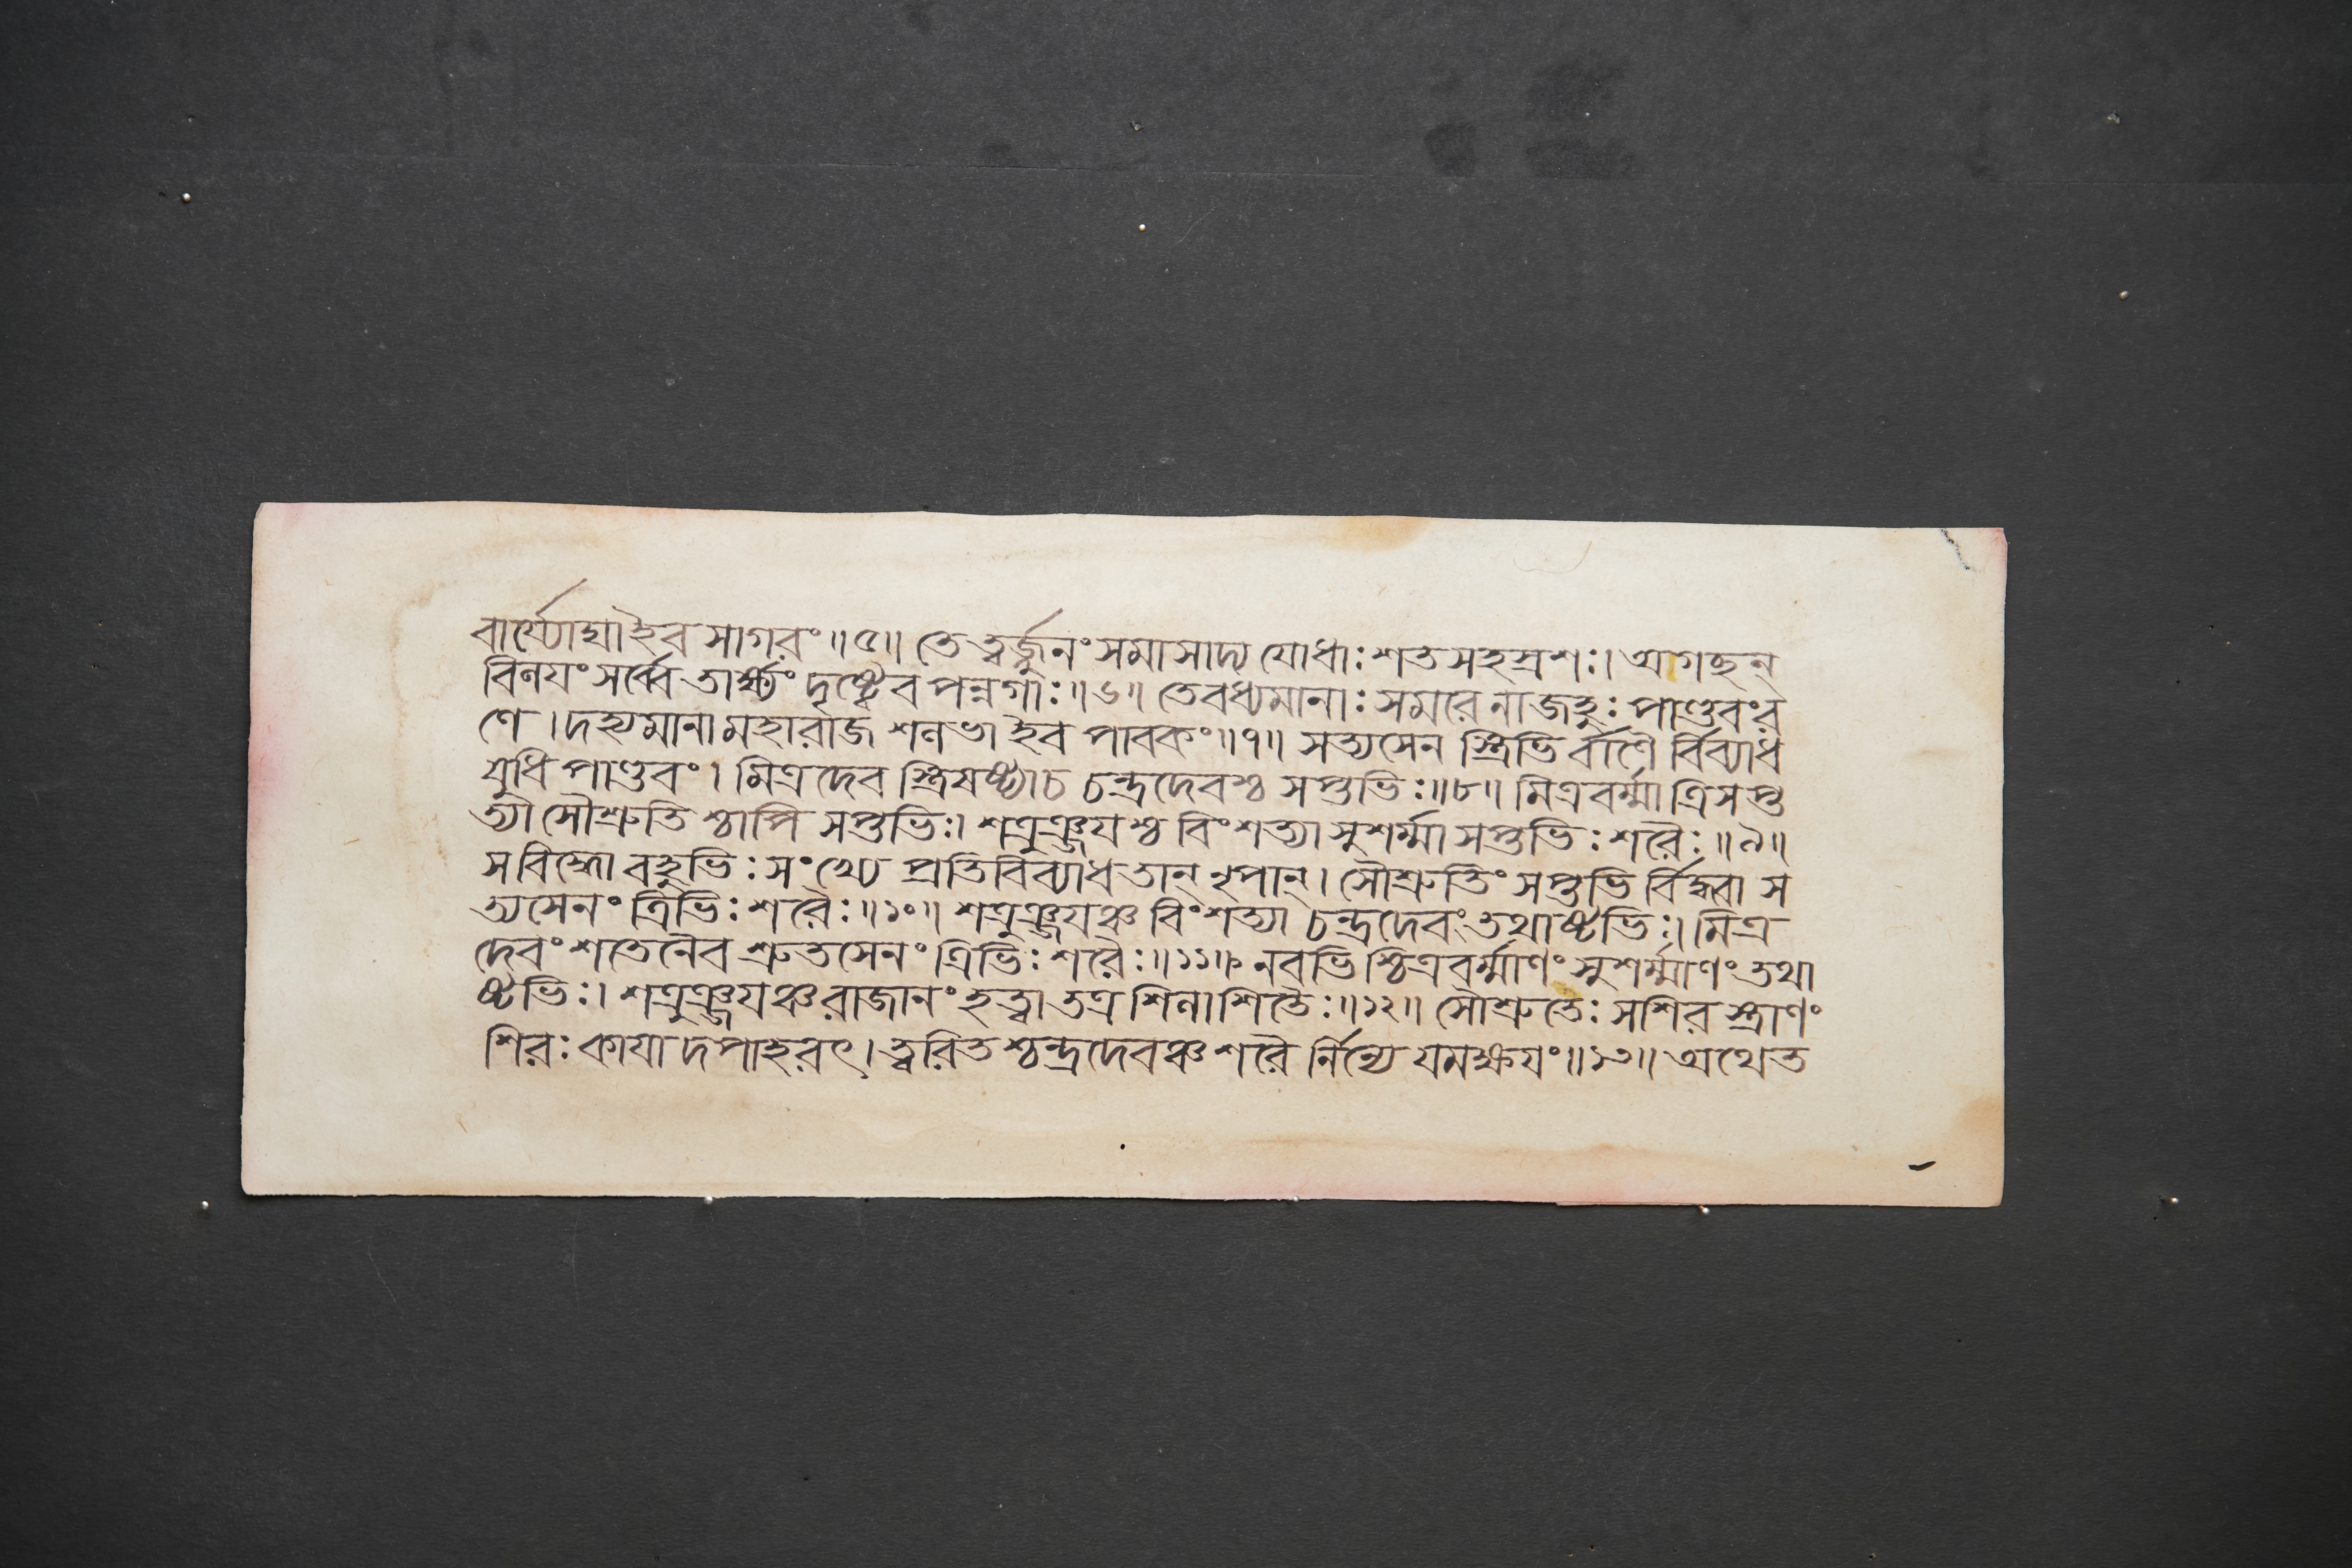 বার্য্যোঘাইব সাগরং॥৫॥ তেত্বর্জ্জুনং সমাসাদ্য যোধাঃ শতসহস্রশঃ। অগছন্
বিণযং সর্ব্বে তার্ক্ষ্যং দৃষ্ট্বেব পন্নগাঃ॥৬॥ তেবধ্যমানাঃ সমরে নাজহুঃ পাণ্ডবংর
ণে। দহ্যমানা মহারাজ শনভা ইব পাবকং॥৭॥ সত্যসেন স্ত্রিভি র্বাণৈ র্বিব্যাধ
যুধি পাণ্ডবং। মিত্রদেব স্ত্রিষষ্ট্যাচ চন্দ্রদেবশ্চ সপ্তভিঃ॥৮॥ মিত্রবর্ম্মা ত্রিসপ্ত
ত্যা সৌশ্রুতি শ্চাপি সপ্তভিঃ। শত্রুঞ্জযশ্চ বিংশত্যা সুশর্ম্মা সপ্তভিঃ শরৈঃ॥৯॥
স বিদ্ধো বহুভিঃ সংখ্যে প্রতিবিব্যাধ তান্ নৃপান্। সৌশ্রুতিং সপ্তভি র্বিদ্ধ্বা স
ত্যসেনং ত্রিভিঃ শরৈঃ॥১০॥ শত্রুঞ্জযঞ্চ বিংশত্যা চন্দ্রদেবং তথাষ্টভিঃ। মিত্র
দেবং শতেনৈব শ্রুতসেনং ত্রিভিঃ শরৈঃ॥১১॥ নবভি শ্চিত্রবর্ম্মাণং সুশর্ম্মাণং তথা
ষ্টভিঃ। শত্রুঞ্জযঞ্চ রাজানং হত্বা তত্র শিনাশিতৈঃ॥১২॥ সৌশ্রুতেঃ সশির স্ত্রাণং
শিরঃ কাযা দপাহরৎ। ত্বরিত শ্চন্দ্রদেবঞ্চ শরৈ র্নিন্যে যমক্ষযং॥১৩॥ অথেত